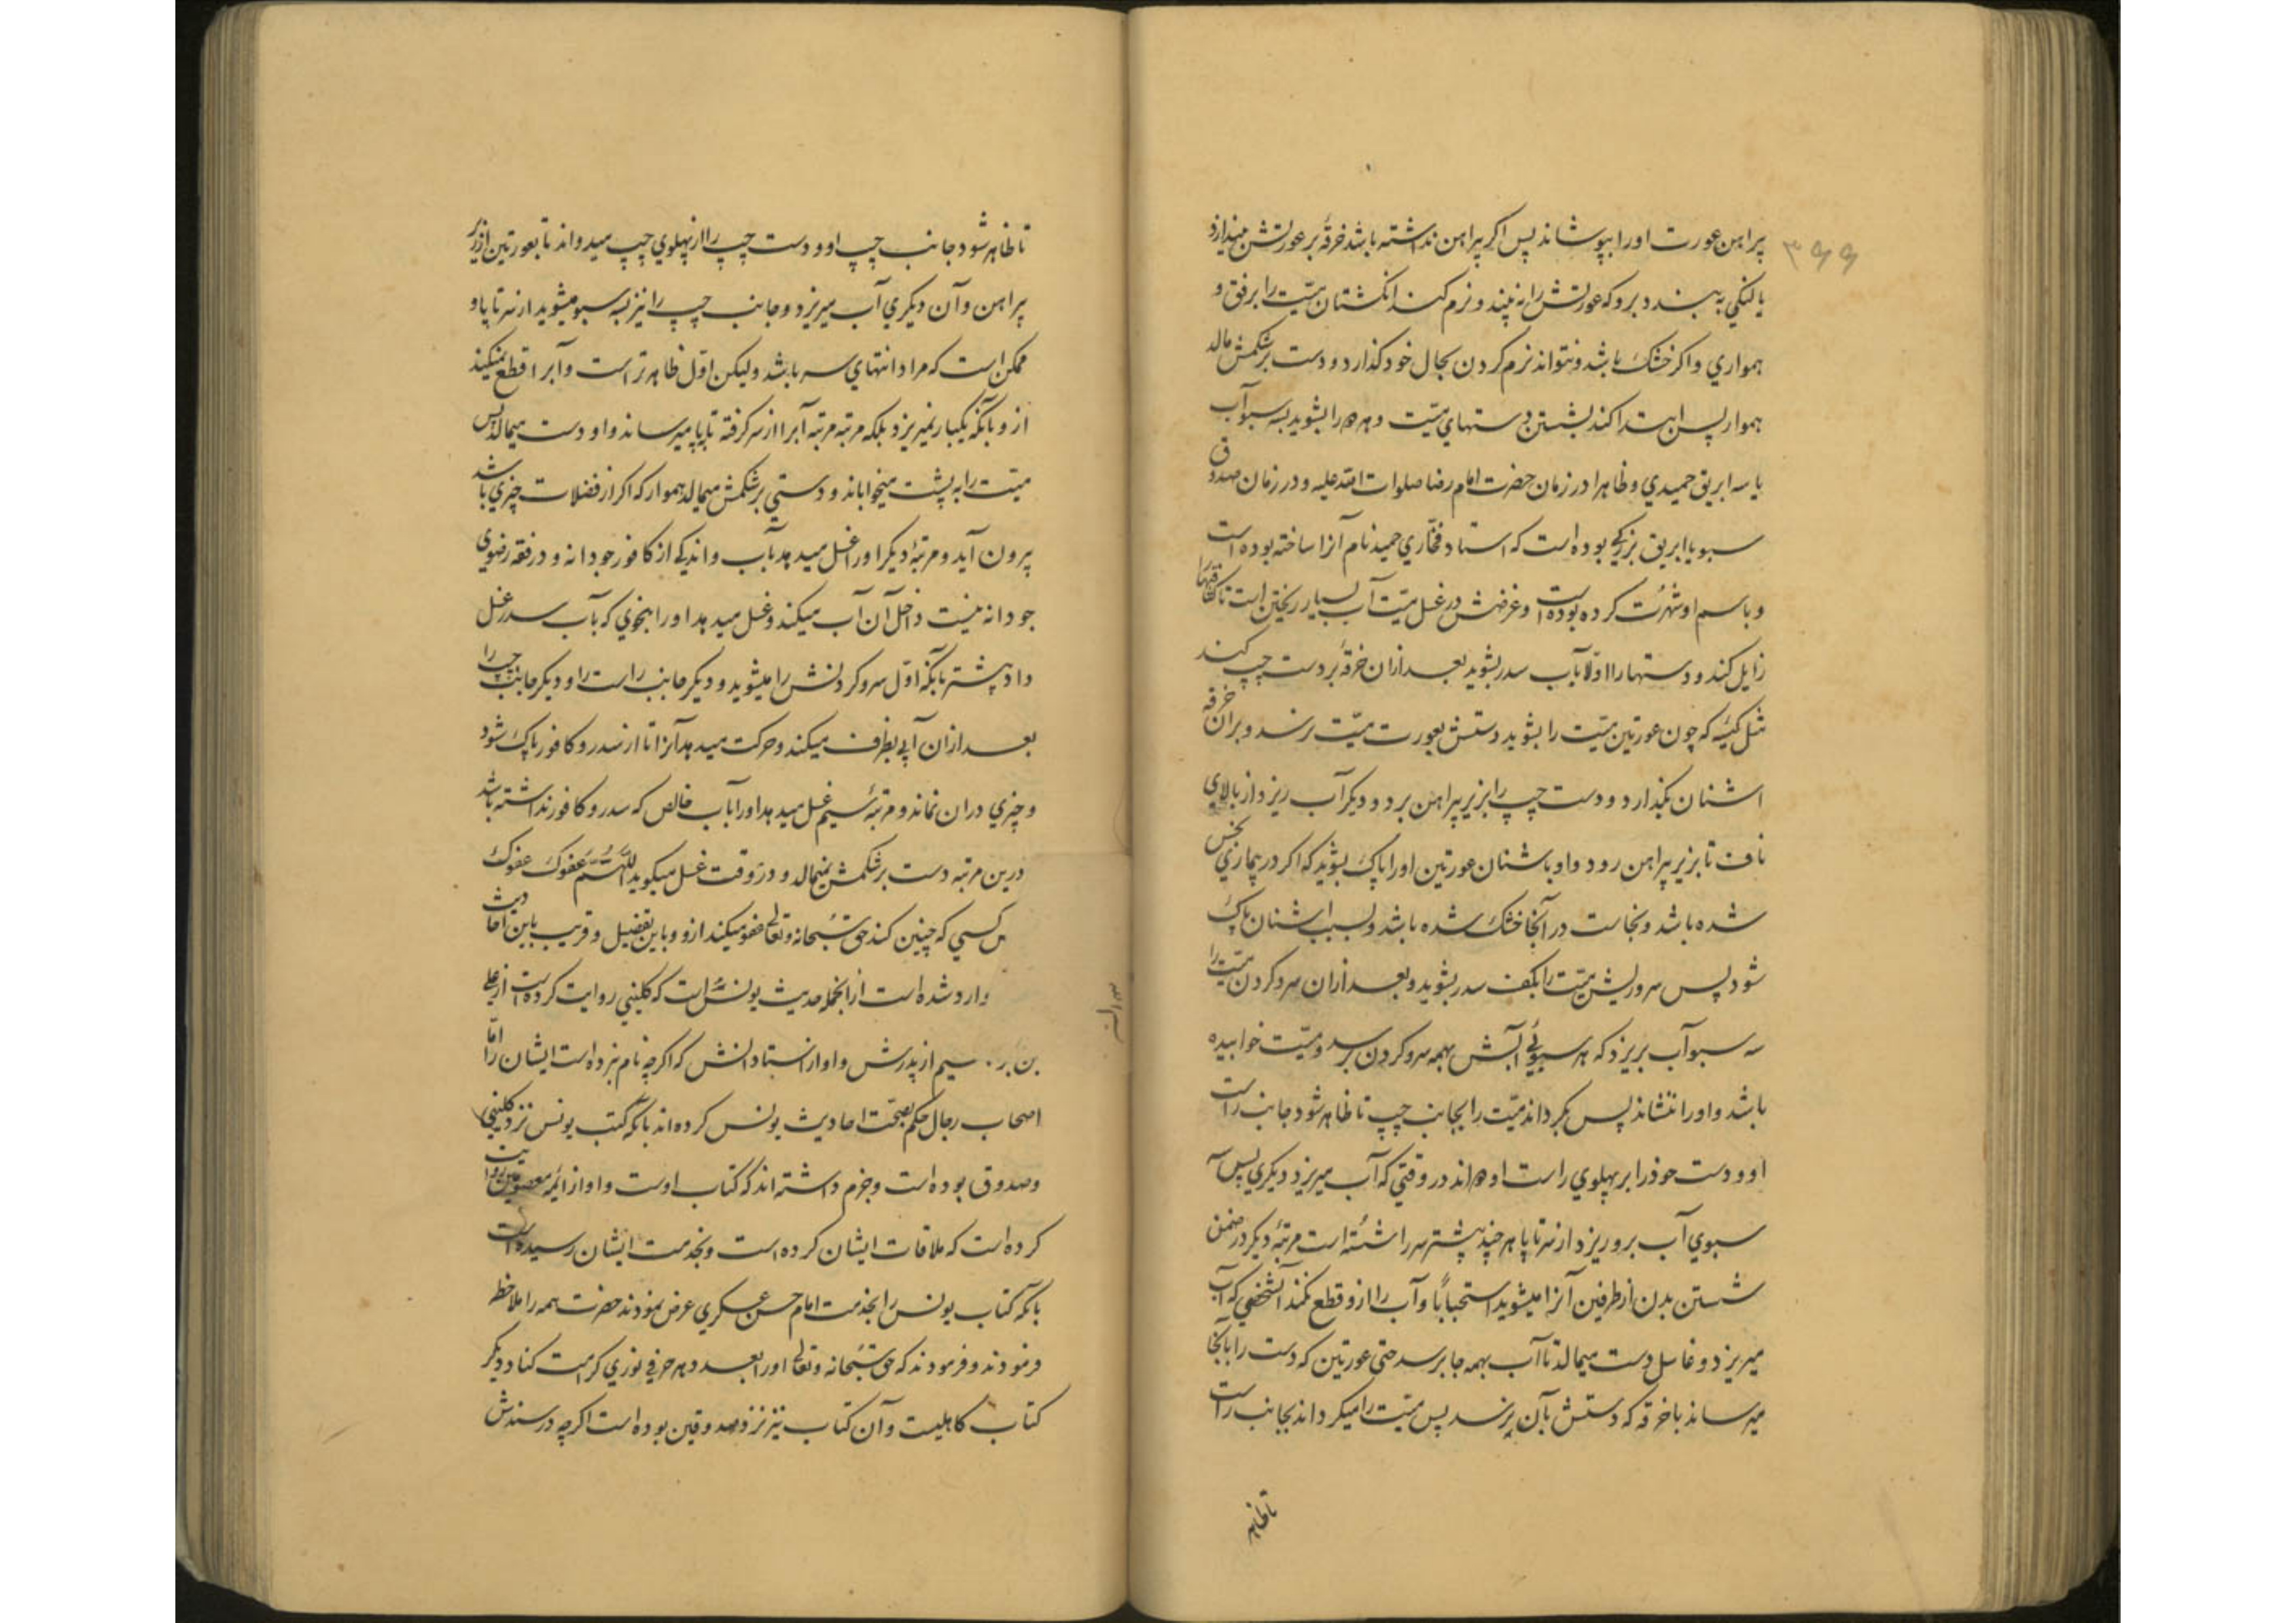 ۳۹۹
پیراهن عورت اورا بپوشاند پس اکر پیراهن نداشته باشد خرقهٔ بر عورتش میندازد
یا لنکی به بندد برو که عورتش را نه بیند و نرم کند انکشتان میّت را برفق و
همواری و اکر خشک باشد و نتواند نرم کردن بحال خود کذارد و دست برشکمش مالد
هموار پس ابتدا کند بشستن دستهای میّت و هر دو را بشوید بسه سبو آب
یا سه ابریق حمیدی و ظاهرا در زمان حضرت امام رضا صلوات الله علیه و در زمان صدوق
سبو یا ابریق بزرکی بوده است که استاد فخّاری حمید نام آنرا ساخته بوده است
و باسم او شهرت کرده بوده است و غرضش در غسل میّت آب بسیار ریختن است تا کثافتها
زایل کند و دستها را اوّلا بآب سدر بشوید بعد ازان خرقهٔ بر دست چپ کند
مثل کیسه که چون عورتین میّت را بشوید دستش بعورت میّت نرسد و بران خرقه
اشنان بکذارد و دست چپ را بزیر پیراهن برد و دیکر آب ریزد از بالای
ناف تا بزیر پیراهن رود و او باشنان عورتین اورا پاک بشوید که اکر در بیماری نجس
شده باشد و نجاست در آنجا خشک شده باشد و بسبب اشنان پاک
شود پس سر و ریش میّت را بکف سدر بشوید و بعد ازان سر و کردن میّت را
سه سبو آب بریزد که هر سبوئی آبش بهمه سر و کردن برسد و میّت خوابیده
باشد و اورا ننشاند پس بکرداند میّت را بجانب چپ تا ظاهر شود جانب راست
او و دست خود را بر پهلوی راست او دواند در وقتی که آب میریزد دیکری پس سه
سبوی آب برو ریزد از سر تا پا هر چند پیشتر سر را شسته است مرتبهٔ دیکر در ضمن
شستن بدن از طرفین آنرا میشوید استحبابًا و آب را ازو قطع نکند آنشخصی که آب
میریزد و غاسل دست میمالد تا آب بهمه جا برسد حتی عورتین که دست را بآنجا
میرساند باخرقه که دستش بآن نرسد پس میّت را میکرداند بجانب راست
تا ظاهر
تا ظاهر شود جانب چپ او و دست چپ را از پهلوی چپ میدواند تا بعورتین از زیر
پیراهن و آن دیکری آب میریزد و جانب چپ را نیز بسه سبو میشوید از سر تا پا و
ممکن است که مراد انتهای سر باشد و لیکن اوّل ظاهرتر است و آبرا قطع نمیکند
ازو بآنکه یکبار نمیریزد بلکه مرتبه مرتبه آبرا از سر کرفته تا پا میرساند و او دست میمالد پس
میّت را به پشت میخواباند و دستی برشکمش میمالد هموار که اکر از فضلات چیزی باشد
بیرون آید و مرتبهٔ دیکر اورا غسل میدهد بآب و اندکی از کافور جودانه و در فقه رضوی
جودانه نیست داخل آن آب میکند و غسل میدهد اورا بنحوی که بآب سدر غسل
داد پیشتر بآنکه اوّل سر و کردنش را میشوید و دیکر جانب راست را و دیکر جانب چپ را
بعد ازان آبی بظرف میکند و حرکت میدهد آنرا تا از سدر و کافور پاک شود
و چیزی دران نماند و مرتبهٔ سیم غسل میدهد اورا بآب خالص که سدر و کافور نداشته باشد
درین مرتبه دست برشکمش نمیمالد و در وقت غسل میکوید اللّهمّ عفوک عفوک
کسی که چنین کند حق سُبحانه و تعالی عفو میکند ازو و باین تفضیل و قریب باین احادیث
وارد شده است از انجمله حدیث یونس است که کلینی روایت کرده است از علی
بن بر سیم از پدرش و او از استادانش که اکرچه نام نبرده است ایشان را امّا
اصحاب رجال حکم بصحّت احادیث یونس کرده اند بآنکه کتب یونس نزد کلینی
و صدوق بوده است و جزم داشته اند که کتاب اوست و او از ائمّه معصومین روایت
کرده است که ملاقات ایشان کرده است و بخدمت ایشان رسیده است
بآنکه کتاب یونس را بخدمت امام حسن عسکری عرض نمودند حضرت همه را ملاحظه
فرمودند و فرمودند که حق سُبحانه و تعالی اورا بعدد هر حرفی نوری کرامت کناد و دیکر
کتاب کاهلیست و آن کتاب نیز نزد صدوقین بوده است اکرچه در سندش